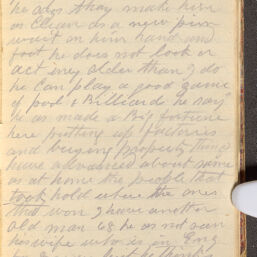 he does they make him
as Clean as a new pin
wait on him hand and
foot he does not look or
act any older than I do
he can play a good game
of pool & Billiard he says
he as made a Big fortune
here putting up factories
and buying property things
have advanced about same
as at home the people that
took hold where the ones
that won I have another
old man 68 he as not seen
his wife who is in Eng